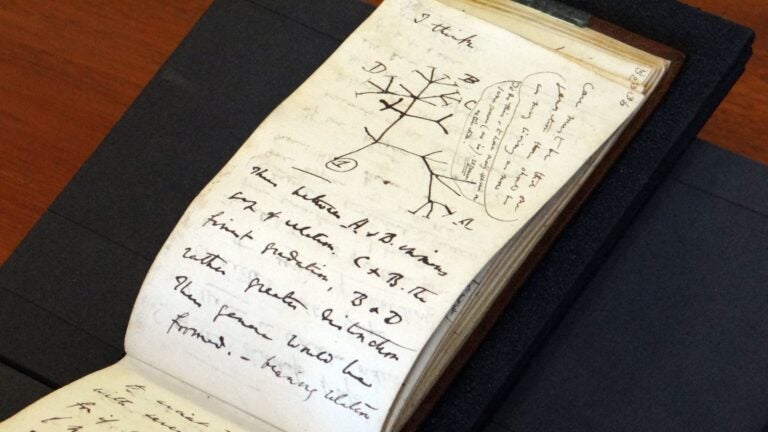 I think
D
B
C
A
1
Case must be that
one generation then should be
as many living as now
To do this & to have many species in
same genus (as is) requires
extinction
Thus between A & B. immense
gap of relation. C & B. the
finest gradation, B & D
rather greater distinction
Thus genera would be
formed. — bearing relation
to ancient
with several
for if